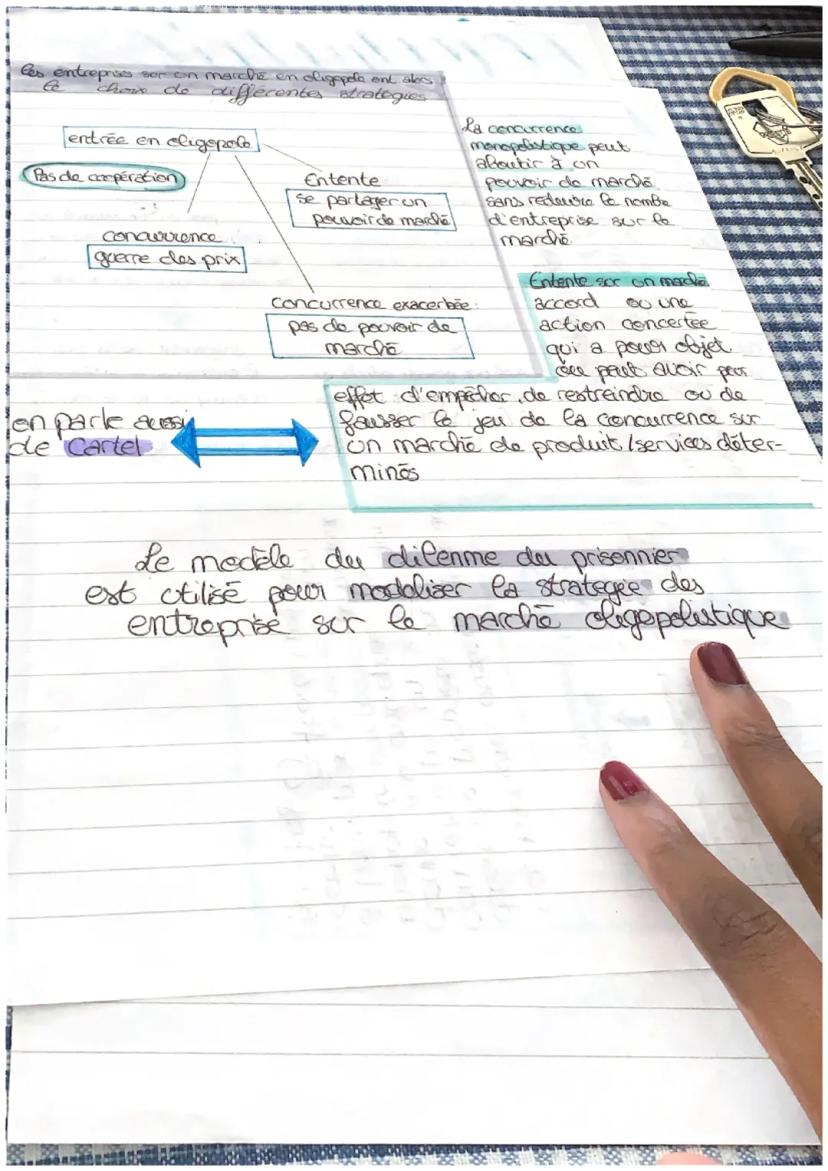 les entreprises sur un marché en oligopole ont alors
le choix de différentes stratégies
entrée en oligopole
Pas de coopération
Entente
se partager un
pouvoir de marché
concurrence
guerre des prix
Concurrence exacerbée:
pas de pouvoir de
marché
La concurrence
monopolistique peut
aboutir à un
pouvoir de marché
sans reduire le nombre
d'entreprise sur le
marché
Entente sur un marché
accord ou une
action concertée
qui a pour objet
ou peut avoir pour
effet d'empêcher, de restreindre ou de
fausser le jeu de la concurrence sur
un marché de produit/services déter-
minés
en parle aussi
de Cartel
Le modèle du dilemme du prisonnier
est utilisé pour modéliser la strategie des
entreprise sur le marché oligopolistique